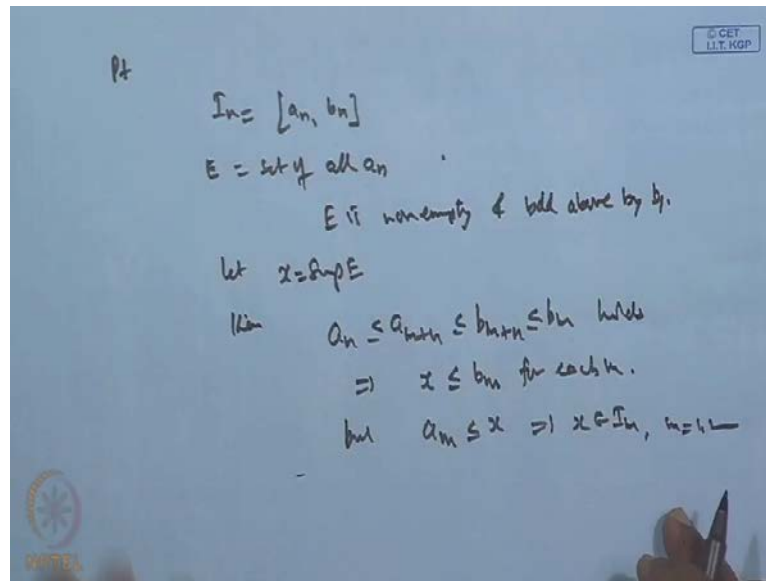 © CET
I.I.T. KGP
Pf
Iₙ = [aₙ, bₙ]
E = set of all aₙ
E is nonempty & bdd above by b₁.
let x = Sup E
Then aₙ ≤ aₘ₊ₙ ≤ bₘ₊ₙ ≤ bₘ holds
⇒ x ≤ bₘ for each m.
but aₘ ≤ x ⇒ x ∈ Iₘ, m = 1, 2 —
NPTEL